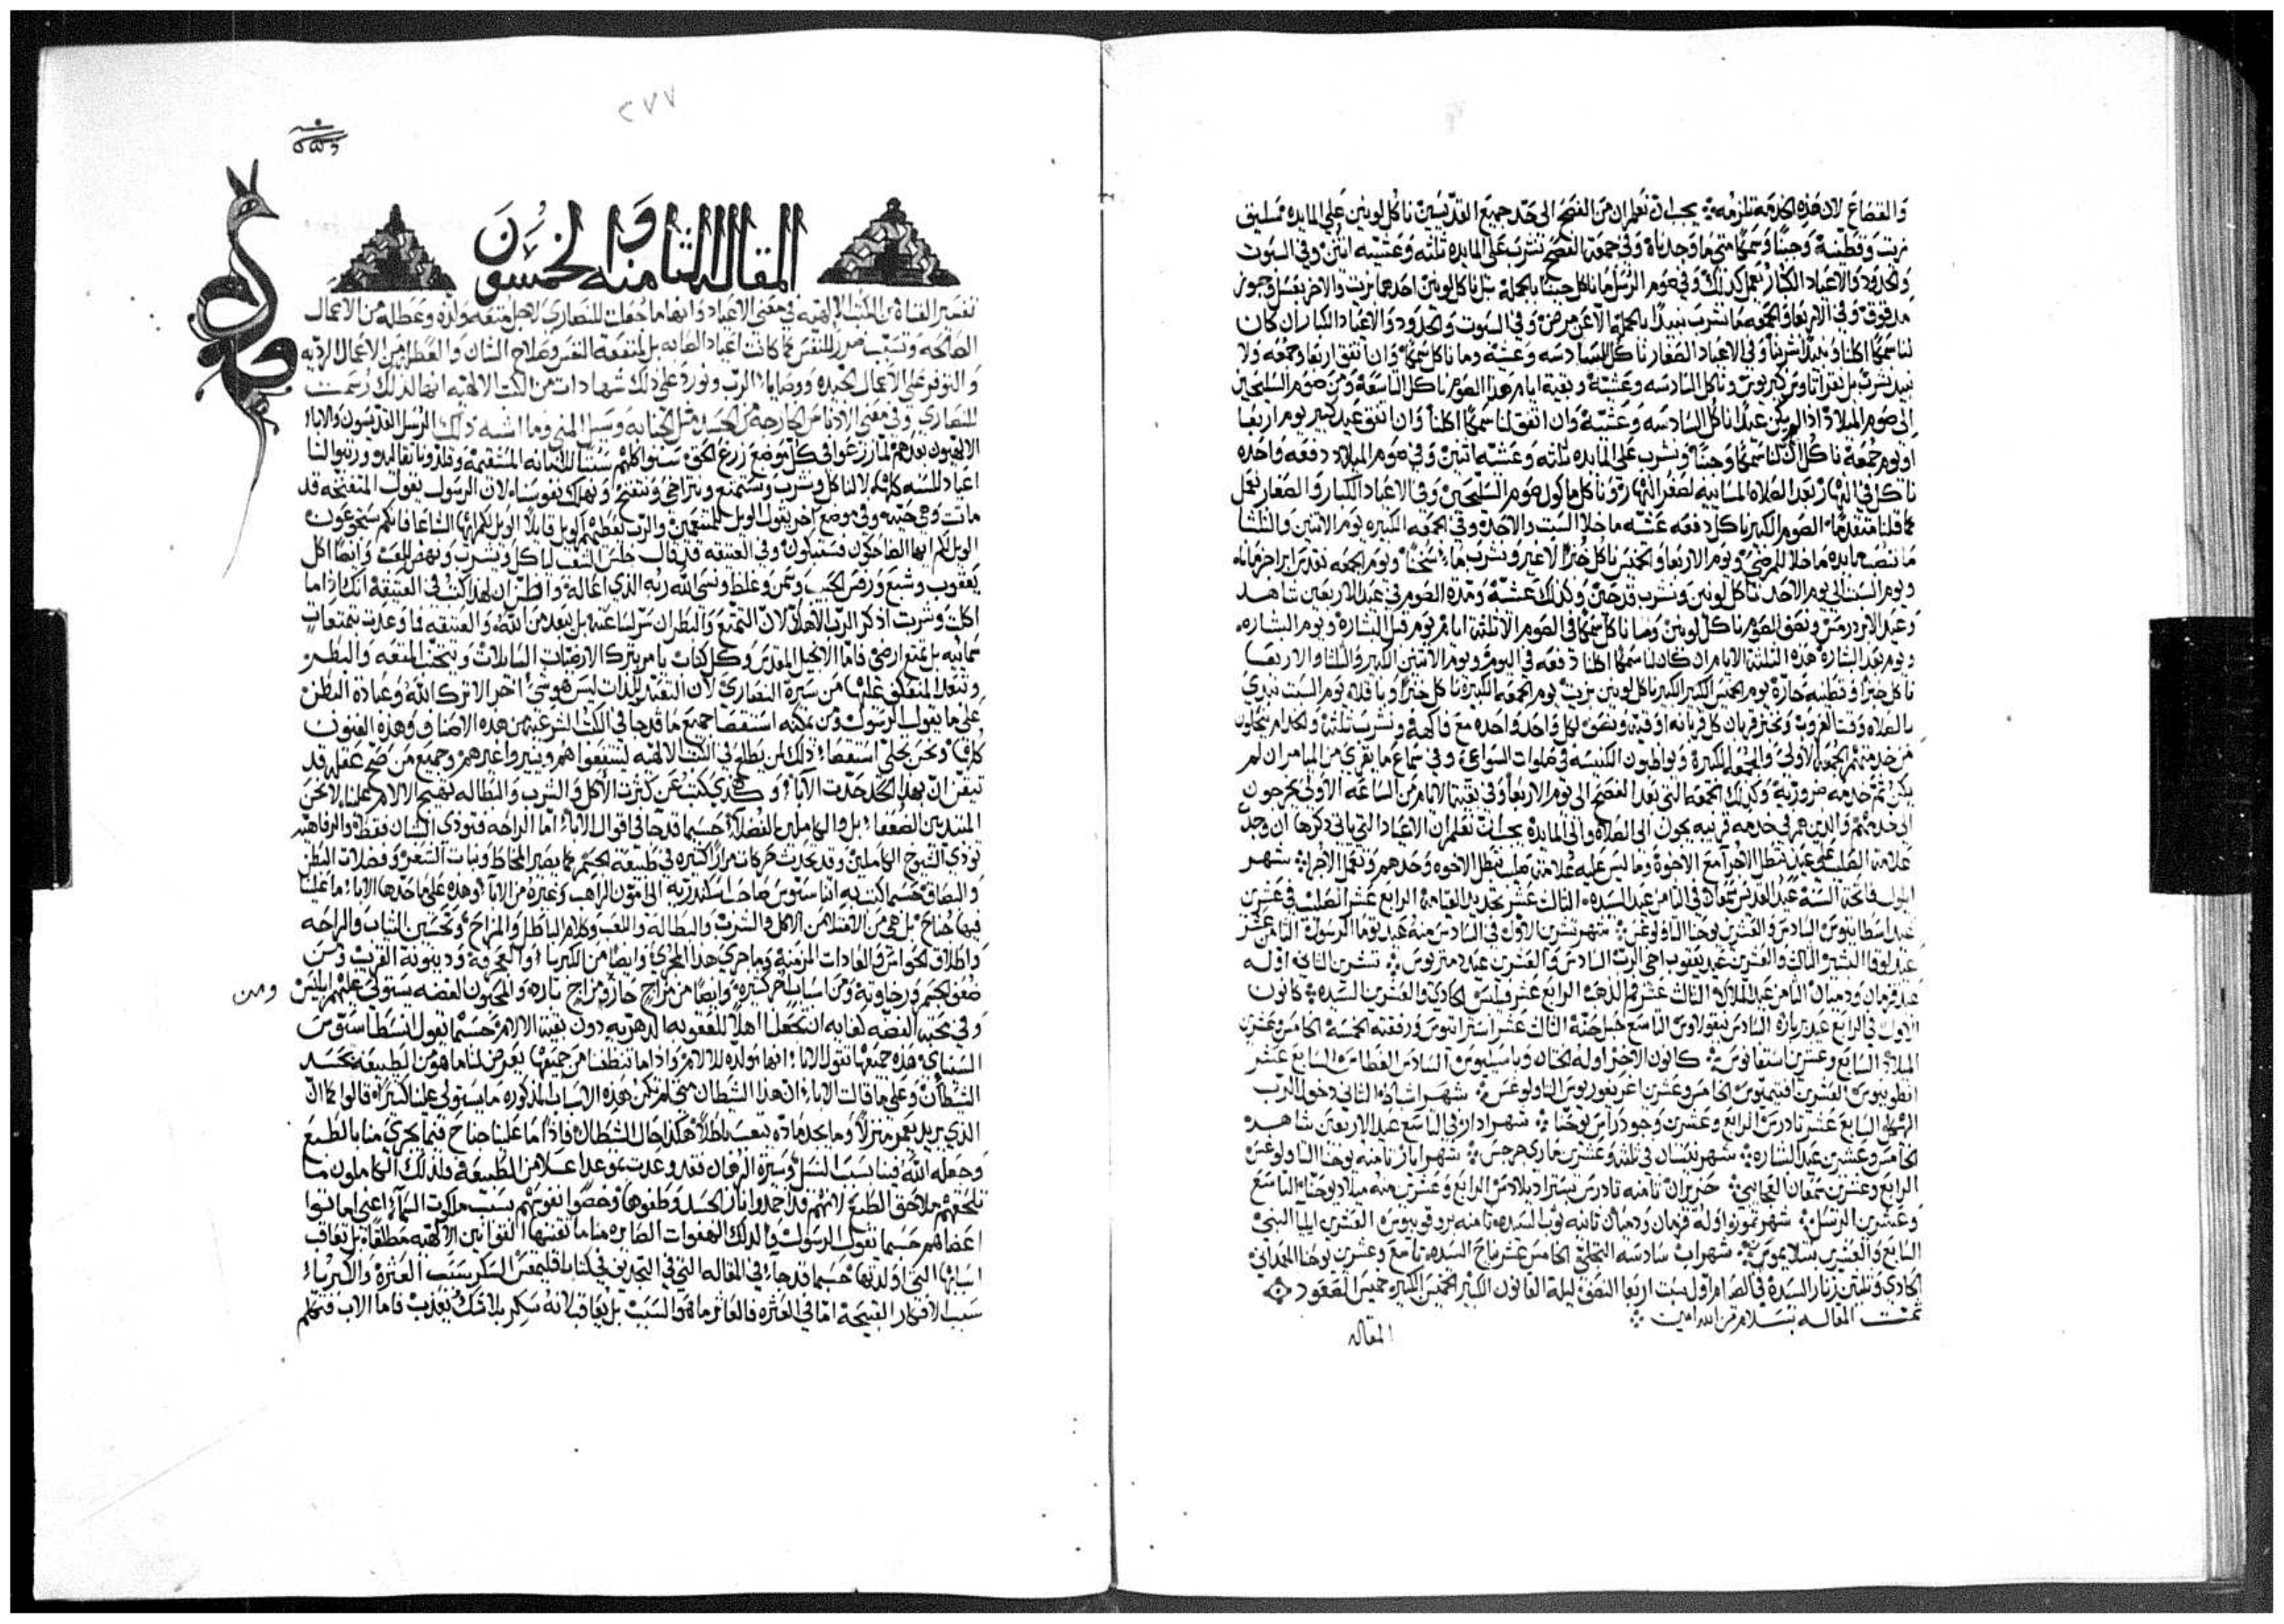 والقصاع لان هذه الخدمه تلزمه ❖ يجب ان تعلم ان من الفصح الى حد جميع القديسين ناكل لونين على المايده مسليق
بزيت وقطنية وجبنًا وسمكًا متي ما وجدناه وفي جمعة الفصح نشرب على المايده ثلثه وعشيه اثنين وفي السبوت
والحدود والاعياد الكبار نعمل كذلك وفي صوم الرسل ما ناكل جبنًا بالجملة بل ناكل لونين احدهما بزيت والاخر بعسل وجوز
مدقوق وفي الاربعا والجمعه ما نشرب نبيدًا بالجملة الا عن مرض وفي السبوت والحدود والاعياد الكبار ان كان
لنا سمكًا اكلنا ونبيدًا شربنا وفي الاعياد الصغار ناكل السادسه وعشية وما ناكل سمكًا وان اتفق اربعا وجمعه ولا
نبيد نشرب بل نقرا تاوس كيريوس وناكل السادسه وعشية وبقية ايام هذا الصوم ناكل التاسعة ومن صوم السليحين
الى صوم الميلاد اذا لم يكن عيدًا ناكل السادسه وعشية وان اتفق لنا سمكًا اكلنا وان اتفق عيد كبير يوم اربعا
او يوم جمعة ناكل ان كان لنا سمكًا وجبنًا ونشرب على المايده ثلثه وعشيه اثنين وفي صوم الميلاد دفعه واحده
ناكل في النهار بعد الصلاه المسايية لصغر النهار وناكل ماكول صوم السليحين وفي الاعياد الكبار والصغار نعمل
كما قلنا متقدمًا الصوم الكبير ناكل دفعه عشيه ما خلا السبت والاحد وفي الجمعه الكبيره يوم الاثنين والثلثا
ما ننصب مايده ما خلا للمرضي ويوم الاربعا والخميس ناكل خبزًا لا غير ونشرب ماء سخنًا ويوم الجمعه
ويوم السبت الى يوم الاحد ناكل لونين ونشرب قدحين وكذلك عشية ومدة الصوم في عيد الاربعين شاهد
وعيد الابرودرمس ونصف الصوم ناكل لونين وما ناكل سمكًا في الصوم الا ثلثة ايام يوم قبل البشارة ويوم البشاره
ويوم بعد البشارة هذه الثلثة الايام ان كان لنا سمكًا اكلنا دفعه في اليوم ويوم الاثنين الكبير والثلثا والاربعا
ناكل خبزًا وقطنيه حارة يوم الخميس الكبير ناكل لونين بزيت يوم الجمعه الكبيرة ناكل خبزًا وباقله يوم السبت نبدي
بالصلاه وقت الغروب ونخبز قربان كل قربانه اوقية ونصف لكل واحد واحده مع فاكهة ونشرب ثلثة والخدام يتحلون
من خدمتهم الجمعة الاولى والجمعه الكبيرة ويواظبون الكنيسه في صلوات السواعي وفي سماع ما يقرى من الميامر ان لم
يكن ثم خدمه ضرورية وكذلك الجمعه التي بعد الفصح الى يوم الاربعا وفي بقية الايام من الساعه الاولى يخرجون
الى خدمتهم والذين هم في خدمه قريبه يجون الى الصلاه والى المايده يجب ان تعلم ان الاعياد التي ياتي ذكرها ان وجد
علامة الصليب على عيد يبطل الاجرا مع الاخوة وما ليس عليه علامة صليب تبطل الاخوه وحدهم وتعمل الاجرا ❖ شهر
ايلول فاتحة السنة عيد القديس سمعان في الثامن عيد السيده الثالث عشر تجديد القيامة الرابع عشر الصليب في عشرين
عيد اسطاتيوس السادس والعشرين يوحنا الثاولوغس ❖ شهر تشرين الاول في السادس منه عيد توما الرسول الثامن عشر
عيد لوقا البشير الثالث والعشرين عيد يعقوب اخي الرب السادس والعشرين عيد دمتريوس ❖ تشرين الثاني اوله
عيد قزمان ودميان الثامن عيد الملايكه الثالث عشر فم الدهب الرابع عشر فيلبس الحادي والعشرين السيده ❖ كانون
الاول في الرابع عيد بربارة السادس نيقولاوس التاسع حبل حنة الثالث عشر استراتيوس ورفقته الخمسة الخامس وعشرين
الميلاد السابع وعشرين استفانوس ❖ كانون الاخير اوله الختان وباسيليوس السادس الغطاس السابع عشر
انطونيوس العشرين افتيميوس الخامس وعشرين اغريغوريوس الثاولوغس ❖ شهر اشباط الثاني دخول الرب
الهيكل السابع عشر تادرس الرابع وعشرين وجود راس يوحنا ❖ شهر ادار في التاسع عيد الاربعين شاهد
الخامس وعشرين عيد البشاره ❖ شهر نيسان في ثلثة وعشرين ماري جرجس ❖ شهر ايار ثامنه يوحنا الثاولوغس
الرابع وعشرين سمعان العجايبي ❖ حزيران ثامنه تادرس الرابع وعشرين منه ميلاد يوحنا التاسع
وعشرين الرسل ❖ شهر تموز اوله قزمان ودميان ثانيه ثوب السيده ثامنه بروقوبيوس العشرين ايليا النبي
السابع والعشرين بنتلايمون ❖ شهر اب سادسه التجلي الخامس عشر نياح السيده تاسع وعشرين يوحنا المعمداني
الحادي وثلثين زنار السيده في الصيام اول سبت اربعا النصف ليلة القانون الكبير الخميس الكبير خميس الصعود
تمت المقاله بسلام من الله امين ❖
المقاله
٢٧٧
المقاله الثامنه والخمسون
تفسير القناة من الكتب الالهية في معنى الاعياد وانها ما جعلت للنصارى لاجل متعه ولذه وعطله من الاعمال
الصالحه وتسبب ضرر للنفس كما كانت اعياد الصابه بل لمنفعة النفس وصلاح الشان والعطل من الاعمال الرديه
والتوفر على الاعمال الحميده ووصايا الرب ونورد على ذلك شهادات من الكتب الالهيه انها لذلك رسمت
للنصارى وفي معنى الادناس الخارجه من الجسد مثل الجنابه وسيل المني وما اشبه ذلك الرسل القديسون والابا
الالهيون بعدهم لما زرعوا في كل موضع زرع الحق سنوا كلهم سننًا للامانه المستقيمة وقلدونا تقاليد ورتبوا لنا
اعياد للسنه كلها لا لناكل ونشرب ونستمتع ونتراخى وننتفخ ونهلك نفوسنا لان الرسول يقول المتفتحه قد
ماتت وهي حيه وفي موضع اخر يقول الويل للمتنعمين والرب يعطيهم الويل قايلًا الويل لكم ايها الشباعا فانكم ستجوعون
الويل لكم ايها الضاحكون فستبكون وفي العتيقه قد قال جلس الشعب لياكل ويشرب ونهض للعب وايضًا اكل
يعقوب وشبع ورفس الحبيب وسمن وغلظ ونسي الله ربه الذي اعاله وافطن ان لهذا كتب في العتيقة انك اذا ما
اكلت وشربت اذكر الرب الاهك لان التمتع والبطر ان ليس لنا عنه بل يبعد من الله والعتيقه فما وعدت بتمتعات
سمائيه بل بمتع ارضي فاما الانجيل المقدس وكل كتاب يامر بترك الارضيات السايلات وبتجنب المتعه والبطر
وتبعد المنعكف عليها من سيرة النصارى لان التعبد للذات ليس هو شي اخر الا ترك الله وعبادة البطن
على ما يقول الرسول ومن يمكنه استقصا جميع ما قد جا في الكتب الشرعية من هذه الاصناف وهذه الفنون
كافي ونحن نخلي استقصا ذلك لمن يطلع في الكتب الالهيه لينتفعوا هم وينيروا غيرهم وجميع من صح عقله قد
تيقن ان بهذا الحد حدت الابا وكمدي يكتب عن كثرت الاكل والشرب والبطاله تهيج الالام علينا لا نحن
المبتديين الضعفا بل والكاملين الفضلا حسبما قد جا في اقوال الابا اما الراحه فتوذي الشبان فقط والرفاهيه
توذي الشيوخ الكاملين وقد تحدث حركات مرارًا كثيره في طبيعة الجسم كما يصير المخاط ونبات الشعر وفضلات البطن
والبصاق حسبما كتب به اتناسيوس صاحب اسكندريه الى امون الراهب وغيره من الابا وهذه على ما حدها الابا ما علينا
فيها جناح بل هي من الامتلا من الاكل والشرب والبطاله واللعب وكلام الباطل والمزاح وتحسين الثياب والراحه
واطلاق الحواس والعادات المزمنة وما جري هذا المجرى وايضًا من الكبريا والعجرفة ودينونة القريب ومن
ضعف الجسم ورخاوته ومن اسباب اخر كثيره وايضًا من مزاج حار ومزاج بارد والمحبون الفضه يستولي عليهم ابليس
ومن
وفي محبة الفضه كفايه ان تجعلنا اهلًا للعقوبه الدهريه دون بقية الالام حسبما يقول انسطاسيوس
السينائي هذه جميعها تقول الابا انها تولد لنا الالام واذا ما تنظفنا من جميعها يعرض لنا ما هو من الطبيعه بحسد
الشيطان وعلى ما قالت الابا ان هذا الشيطان متى لم تكن هذه الاسباب المذكوره ما يستولي علينا كثيرًا قالوا كما ان
الذي يريد يعمر منزلًا وما يجد مادة يتعب باطلًا هكذا حال الشيطان فاذًا ما علينا جناح فيما يجري منا بالطبع
وجعله الله فينا سبب النسل وسيرة الرهبان فقد وعدت بنمو عدا علا من الطبيعة فلذلك الكاملون ما
تلحقهم ملاحق الطبع لانهم قد اخمدوا نار الجسد وطفوها وخصوا نفوسهم بسبب ملكوت السماء اعني اماتوا
اعضاهم حسبما يقول الرسول ولذلك الهفوات الصايره منا ما تقتنيها القوانين الالهية مطلقًا بل تعاقب
اسبابها التي اولدتها حسبما قد جاء في المقاله التي في التجديف في كتاب اقليمقس السكر سبب العثرة والكبرياء
سبب الافكار القبيحة اما في العثره فالعاثر ما هو السبب بل يعاقب لانه سكر بلا شك يعذب فاما الاب فتكلم